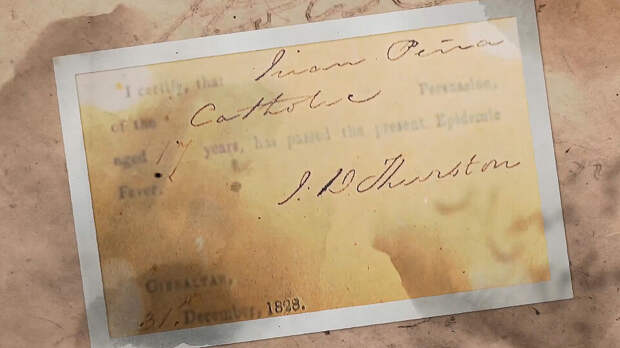 I certify, that Juan Peña
of the Catholic Persuasion,
aged 17 years, has passed the present Epidemic
Fever.
J. D Thurston
GIBRALTAR,
31st December, 1828.